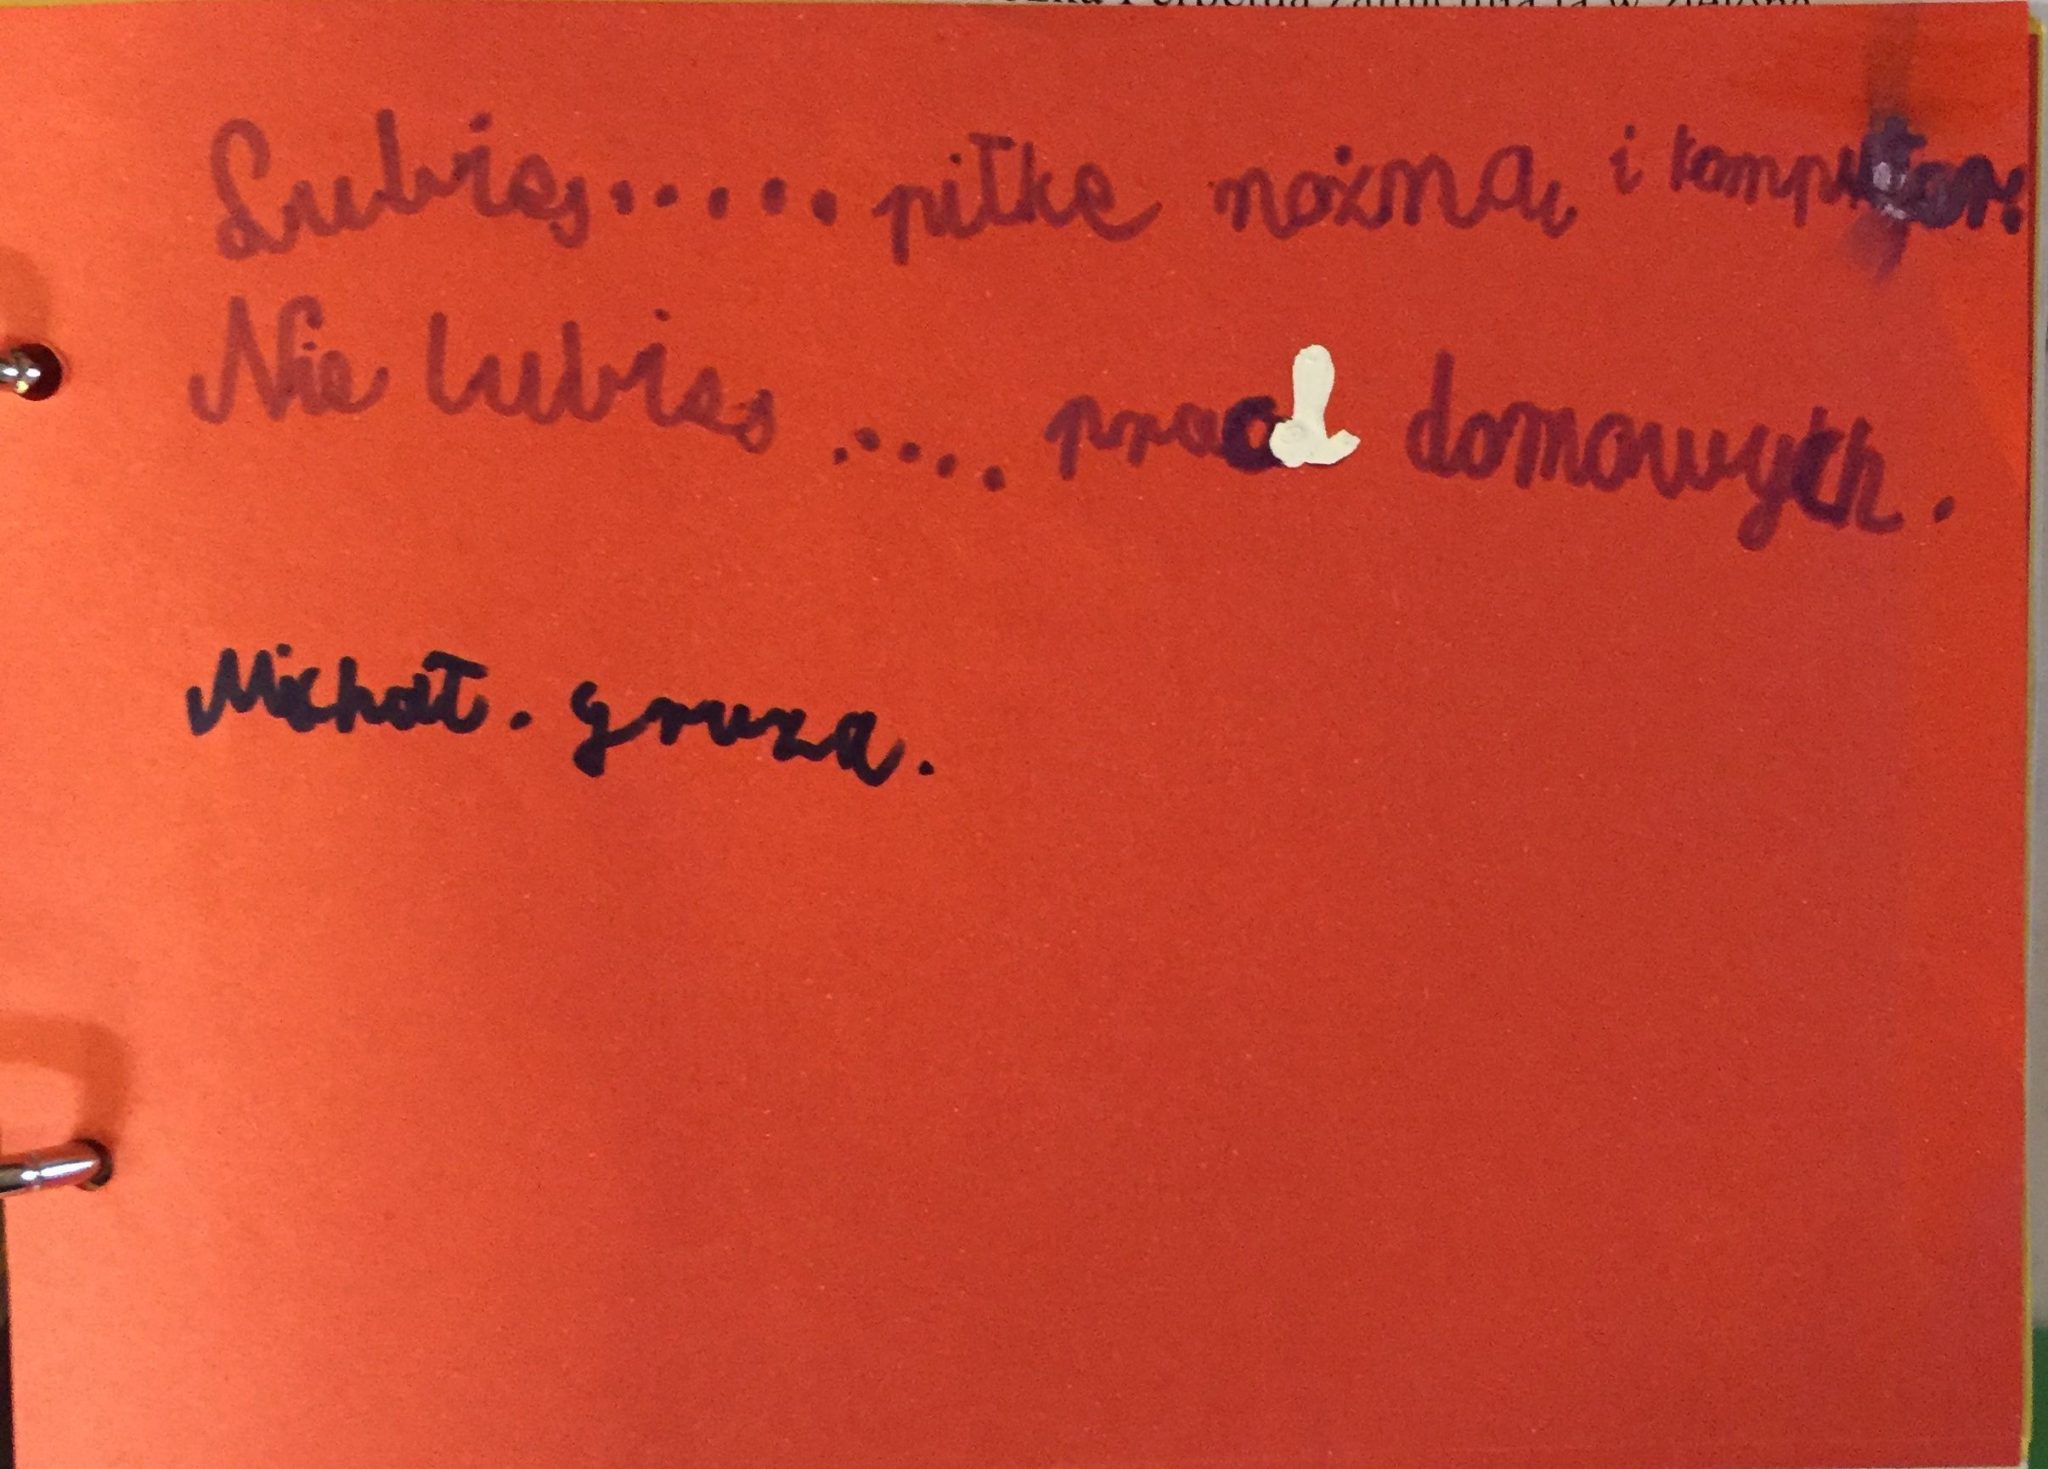 Lubię..... piłkę nożną i komputer.
Nie lubię .... prac domowych.
Michał. gruza.